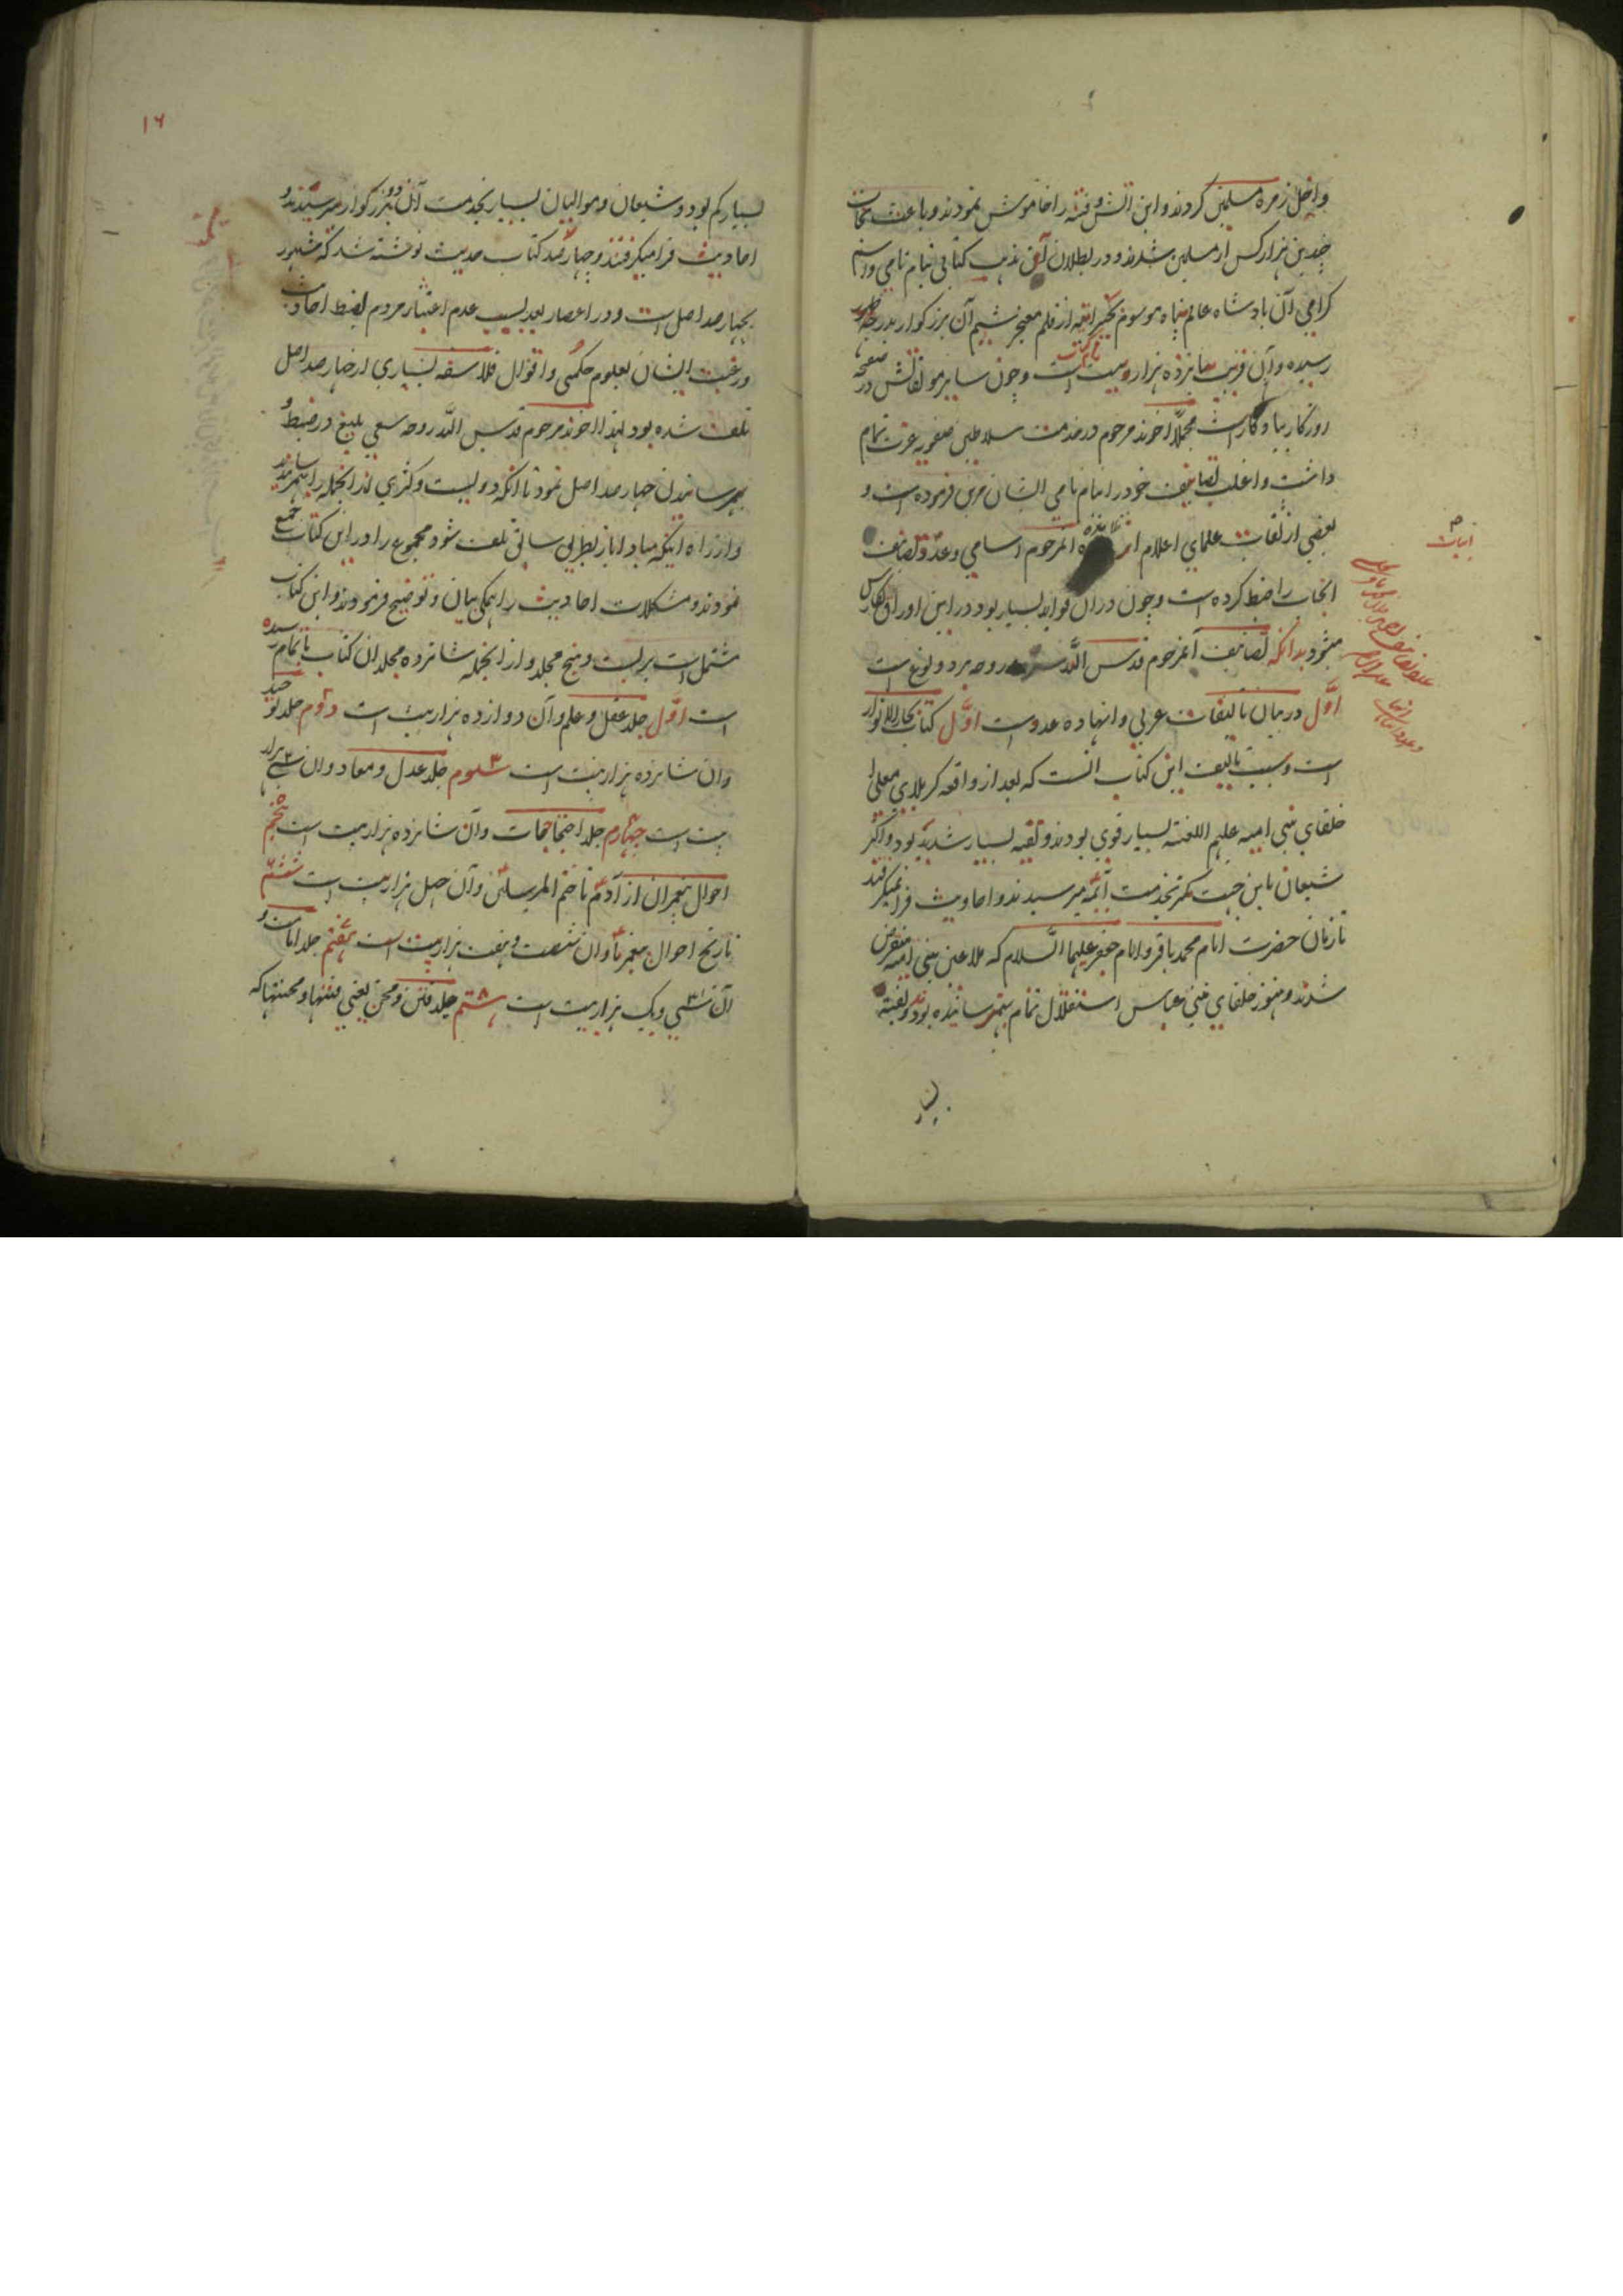 داخل زمره مسلمین کردند و این آتش و فتنه را خاموش نمودند و باعث نجات
چندین هزار کس از مسلمین شدند و در بطلان آن مذهب کتابی بنام نامی و اسم
کرامی آن پادشاه عالم پناه موسوم از قلم معجز شیم آن بزرکوار بدرجه ظهور
رسیده و آن قریب پانزده هزار و بیت است و چون سایر مؤلفاتش در صفحه
روزکار بیادکار است مجملا آخوند مرحوم در خدمت سلاطین صفویه عزت تمام
داشت و اغلب تصانیف خود را بنام نامی ایشان مزین فرموده است و
بعضی از ثقات علمای اعلام از تلامذه المرحوم اسامی و عدد تصانیف
انجناب را ضبط کرده است و چون در آن فواید بسیار بود در این اوراق نکارش
میشود بدانکه تصانیف آنمرحوم قدس الله روحه بر دو نوع است
اوّل در بیان تالیفات عربی و آنها ده عدد است اوّل کتاب بحار الانوار
است و سبب تالیف این کتاب انست که بعد از واقعه کربلای معلی
خلفای بنی امیه علیهم اللعنه بسیار قوی بودند و تقیه بسیار شدید بود و اکثر
شیعان باین جهت کمتر بخدمت ائمه میرسیدند و احادیث فرا نمیکرفتند
تا زمان حضرت امام محمد باقر و امام جعفر علیهما السّلام که ملاعین بنی امیه منقرض
شدند و هنوز خلفای بنی عباس استقلال تمام بهم نرسانیده بودند و تقیه
بسیار
ابیات
۱۶
بسیار کم بود و شیعان و موالیان بسیار بخدمت آن دو بزرکوار میرسیدند و
احادیث فرا میکرفتند و چهار صد کتاب حدیث نوشته شد که مشهور
بچهار صد اصل است و در اعصار بعد بسبب عدم اعتبار مردم بضبط احادیث
و رغبت ایشان بعلوم حکمی و اقوال فلاسفه بسیاری از چهار صد اصل
تلف شده بود لهذا آخوند مرحوم قدس اللّه روحه سعی بلیغ در ضبط و
بهم رسانیدن چهار صد اصل نمود تا آنکه دویست و کثری از انجمله را بهم رسانیدند
و از راه اینکه مبادا باز بطریق سابق تلف شود مجموع را در این کتاب جمع
نمودند و مشکلات احادیث را همکی بیان و توضیح فرمودند و این کتاب
مشتمل است بر بیست و پنج مجلد و از انجمله شانزده مجلد ان کتاب باتمام رسیده
است اوّل جلد عقل و علم و آن دوازده هزار بیت است دوّم جلد توحید
و ان شانزده هزار بیت است سیوم جلد عدل و معاد و ان سی هزار
بیت است چهارم جلد احتجاجات و آن شانزده هزار بیت است پنجم
احوال پیغمبران از آدم تا ختم المرسلین و آن چهل هزار بیت است ششم
تاریخ احوال پیغمبر ما و ان شصت و هفت هزار بیت است هفتم جلد امامت و
آن سی و یک هزار بیت است هشتم جلد فتن و محن یعنی فتنها و محنتها که